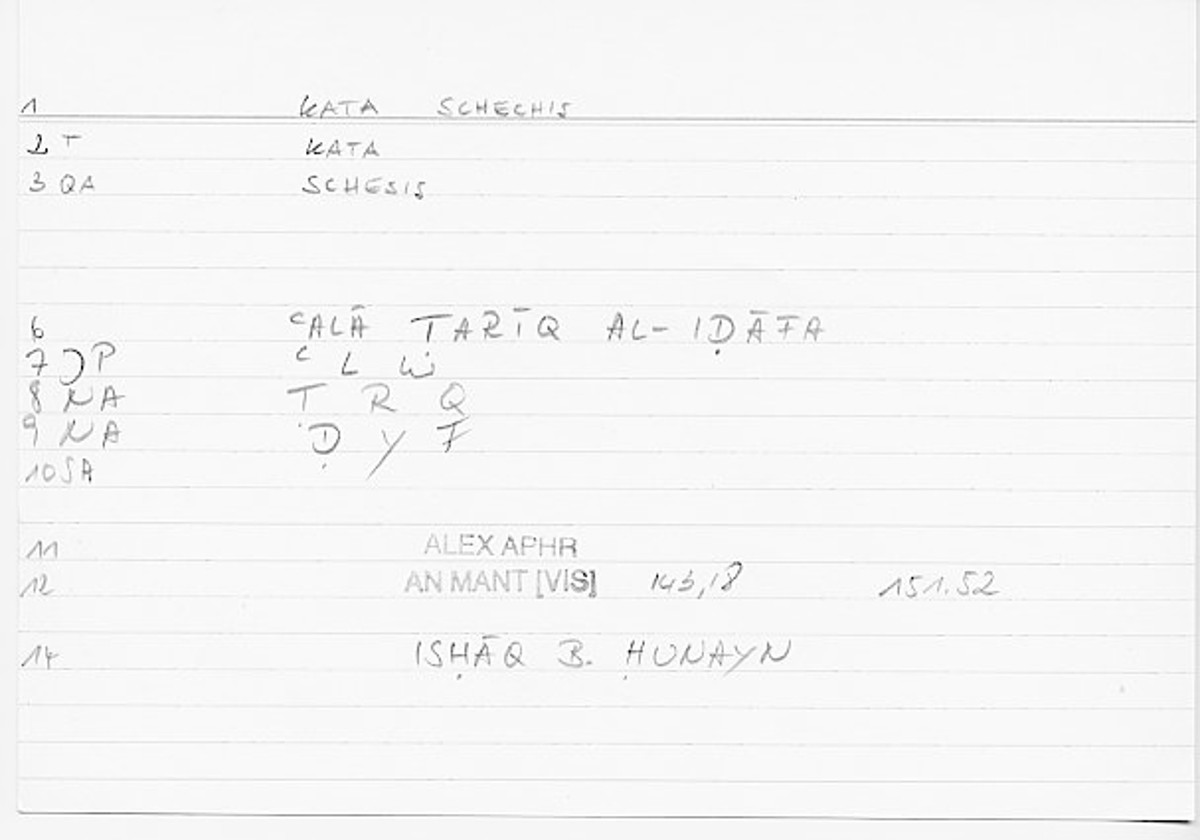 1 KATA SCHECHIS
2 T KATA
3 QA SCHESIS
6 ʿALĀ ṬARĪQ AL-IḌĀFA
7 JP ʿ L Ẇ
8 NA T R Q
9 NA Ḍ Y F
10 SA
11 ALEX APHR
12 AN MANT [VIS] 143,18 151.52
14 ISḤĀQ B. ḤUNAYN